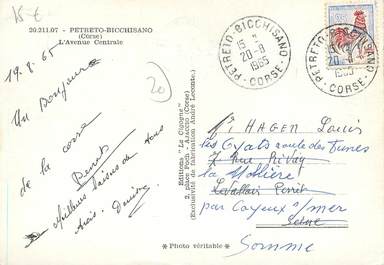 15€
20.211.07 - PETRETO-BICCHISANO
(Corse)
L'Avenue Centrale
19.8.65
Un Bonjour
de la corse
Meilleurs baisers de tous
20
Editions "La Cigogne"
2, place Foch - AJACCIO (Corse)
(Exclusivité de fabrication André Leconte.)
* Photo véritable *
PETRETO-BICCHISANO
15 H
20-8
1965
CORSE
PETRETO-BICCHISANO
20-8
1965
CORSE
HAGEN Louis
les Oyats route des Dunes
7 Rue Rivay
la Mollière
Levallois Perret
par Cayeux s/mer
Seine
Somme